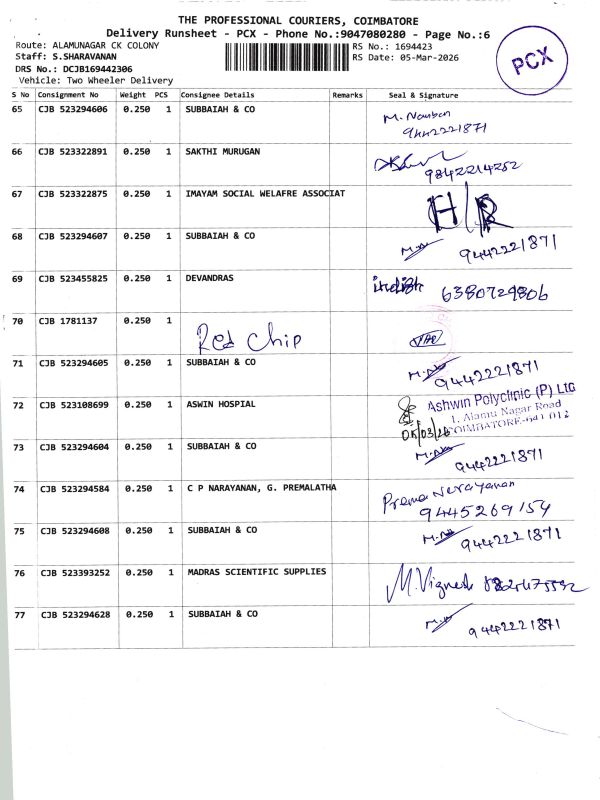 THE PROFESSIONAL COURIERS, COIMBATORE
Delivery Runsheet - PCX - Phone No.:9047080280 - Page No.:6
Route: ALAMUNAGAR CK COLONY
Staff: S.SHARAVANAN
DRS No.: DCJB169442306
Vehicle: Two Wheeler Delivery
RS No.: 1694423
RS Date: 05-Mar-2026
PCX
S No Consignment No Weight PCS Consignee Details Remarks Seal & Signature
65 CJB 523294606 0.250 1 SUBBAIAH & CO M.
9442221871
66 CJB 523322891 0.250 1 SAKTHI MURUGAN
9842214252
67 CJB 523322875 0.250 1 IMAYAM SOCIAL WELAFRE ASSOCIAT H/R
68 CJB 523294607 0.250 1 SUBBAIAH & CO 9442221871
69 CJB 523455825 0.250 1 DEVANDRAS 6380729806
70 CJB 1781137 0.250 1 Red Chip
71 CJB 523294605 0.250 1 SUBBAIAH & CO 9442221871
72 CJB 523108699 0.250 1 ASWIN HOSPIAL Ashwin Polyclinic (P) Ltd
1, Alamu Nagar Road
COIMBATORE-641 012
05/03/26
73 CJB 523294604 0.250 1 SUBBAIAH & CO 9442221871
74 CJB 523294584 0.250 1 C P NARAYANAN, G. PREMALATHA Prema Narayanan
9445269154
75 CJB 523294608 0.250 1 SUBBAIAH & CO 9442221871
76 CJB 523393252 0.250 1 MADRAS SCIENTIFIC SUPPLIES M.Vignesh
77 CJB 523294628 0.250 1 SUBBAIAH & CO 9442221871